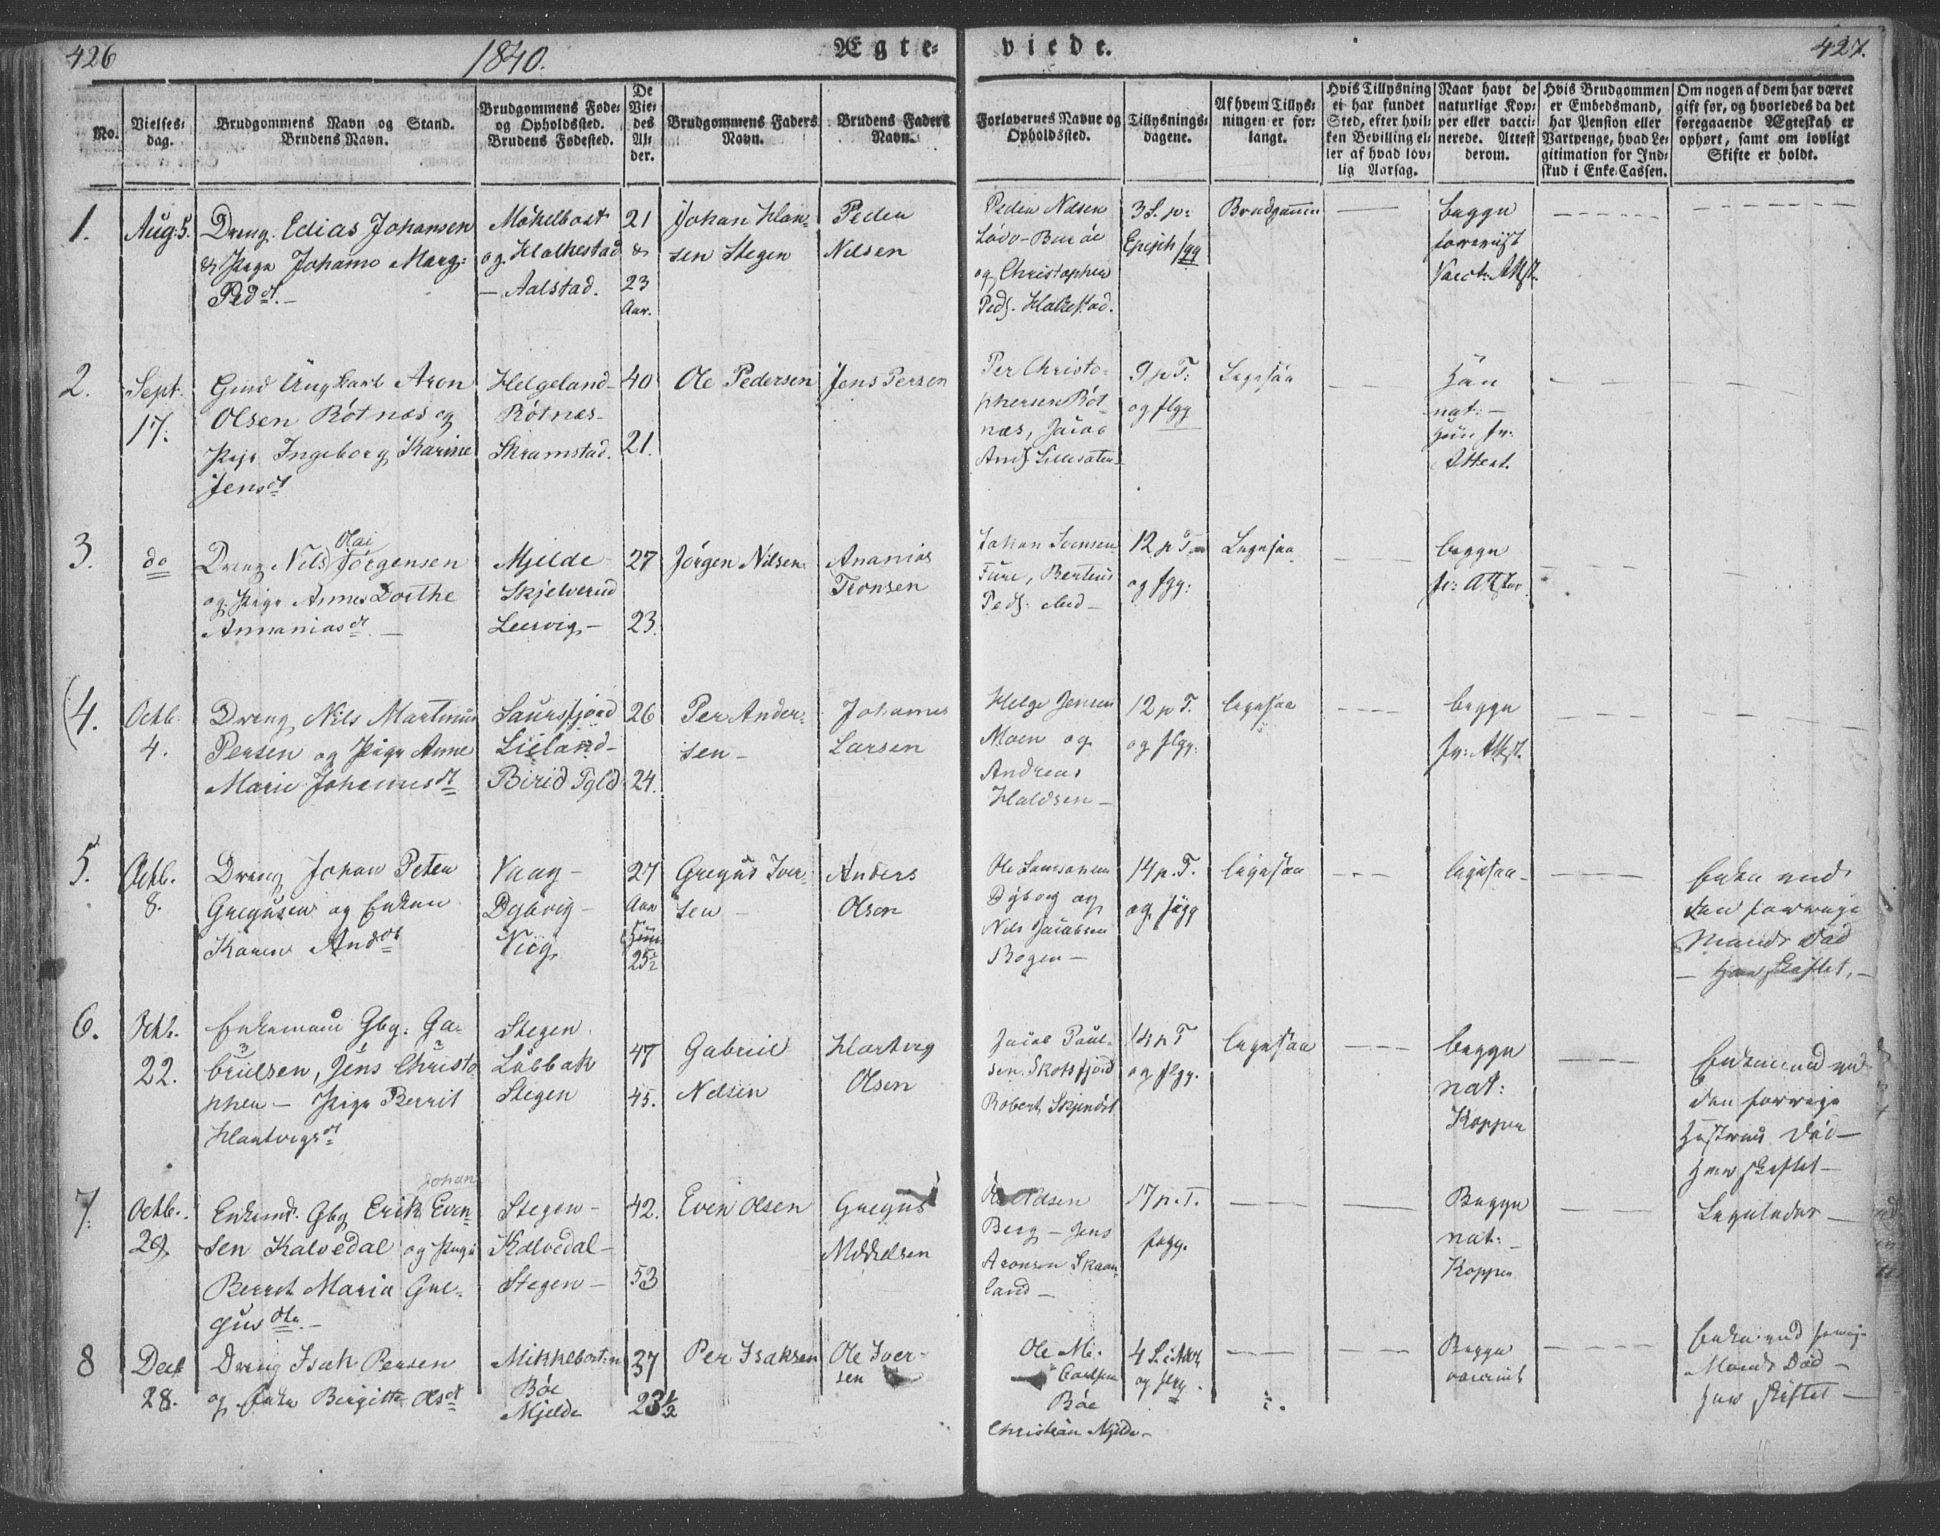 426
1840.
Ægte-
viede.
427.
No.
Vielses-
dag.
Brudgommens Navn og Stand.
Brudens Navn.
Brudgommens Føde-
og Opholdssted.
Brudens Fødested.
De
Vie-
des
Al-
der.
Brudgommens Faders
Navn.
Brudens Faders
Navn.
Forlovernes Navne og
Opholdssted.
Tillysnings-
dagene.
Af hvem Tillys-
ningen er for-
langt.
Hvis Tillysning
ei har fundet
Sted, efter hvil-
ken Bevilling el-
ler af hvad lov-
lig Aarsag.
Naar havt de
naturlige Kop-
per eller vacci-
nerede. Attest
derom.
Hvis Brudgommen
er Embedsmand,
har Pension eller
Vartpenge, hvad Le-
gitimation for Ind-
skud i Enke-Cassen.
Om nogen af dem har været
gift før, og hvorledes da det
foregaaende Ægteskab er
ophørt, samt om lovligt
Skifte er holdt.
1.
Aug: 5.
Dreng. Edias Johansen
& Pige Johanne Marg:
Peddt. –
Måkelbost
og Klakkestad
– Aalstad.
21
&
23
Aar.
Johan Han-
sen Stegen
Peder
Nilsen
Peder Nilsen
og Christopher
Peds. Hakestad.
3 S. p:
Epiph
Brudgommen
begge
2.
Sept.
17.
Aron
Olsen Rötnæs og
Pige Ingeborg Karine
Jensdt
Helgeland –
Rötnæs –
Skramstad.
40
21.
Ole Pedersen
Jens Persen
Per Christo-
phersen Röt-
næs, Jacob
9 p T:
og flgg
Ligesaa
Han
nat: –
Hun fr:
Attest.
3.
do
Dreng Nils Olai Jörgensen
og Pige Anne Dorthe
Annaniasdt. –
Mjelde –
Skjelverud
Leervig –
27
23.
Jörgen Nilsen
Ananias
Tronsen
Johan Svensen
Fure, Berteus
12 p T.
og flgg:
Ligesaa
begge
4.
Octb.
4.
Dreng Nils Martinus
Persen og Pige Anne
Marie Johannesdt
Saursfjord
Lieland –
Birid Pgld
26
24.
Per Ander-
sen –
Johannes
Larsen
Helge Jensen
Moen og
Andreas
Haldsen –
12 p T.
og flgg:
Ligesaa
begge
fr: Attest.
5.
Octb.
8.
Dreng Johan Peter
Gregusen og Enken
Karen Andsdt
Vaag –
Dybvig –
Viig
27
Aar
Hun
25½
Gregus Iver-
sen –
Anders
Olsen
Dybvig og
Nils Jacobsen
Bogen –
14 p. T.
og flgg
Ligesaa
Ligesaa –
Enke ved
den forrige
Mands Död
– har skiftet. –
6.
Octb.
22.
Enkemand Gbg. Ga-
brielsen, Jens Christo
pher – Pige Berrit
Hartvigsdt
Stegen
Löbbak
Stegen
47
45.
Gabriel
Nilsen
Hartvig
Olsen
Jacob Paul-
sen Skotsfjord
Robert Skjendst
14 p T
og flgg.
Ligesaa
begge
nat:
Kopper
Enkemand ved
den forrige
Hustrues Död –
har skiftet –
7.
Octb.
29.
Johan
Enkemd. Gbg Erik Even-
sen Kalvedal og Pige
Berret Maria Gre-
gusdtr. –
Stegen –
Kalvedal –
Stegen –
42.
53
Even Olsen
Gregus
Mikkelsen
Nilsen
Berg – Jens
Aronsen Skaan-
land –
17 p. T.
flgg.
Begge
nat: –
Kopper
Ligeledes –
8
Decb
28.
Dreng Isak Persen
og Enke Bergitte Olsdt
Mikkelbosten
Böe
Mjelde
37
23½
Per Isaksen
Ole Iver-
sen
Ole Mi-
Böe
Christian Mjelde –
4 S. i Adv.
og flgg.
Begge
vaccint
Enke ved forrige
Mands Död –
har skiftet –